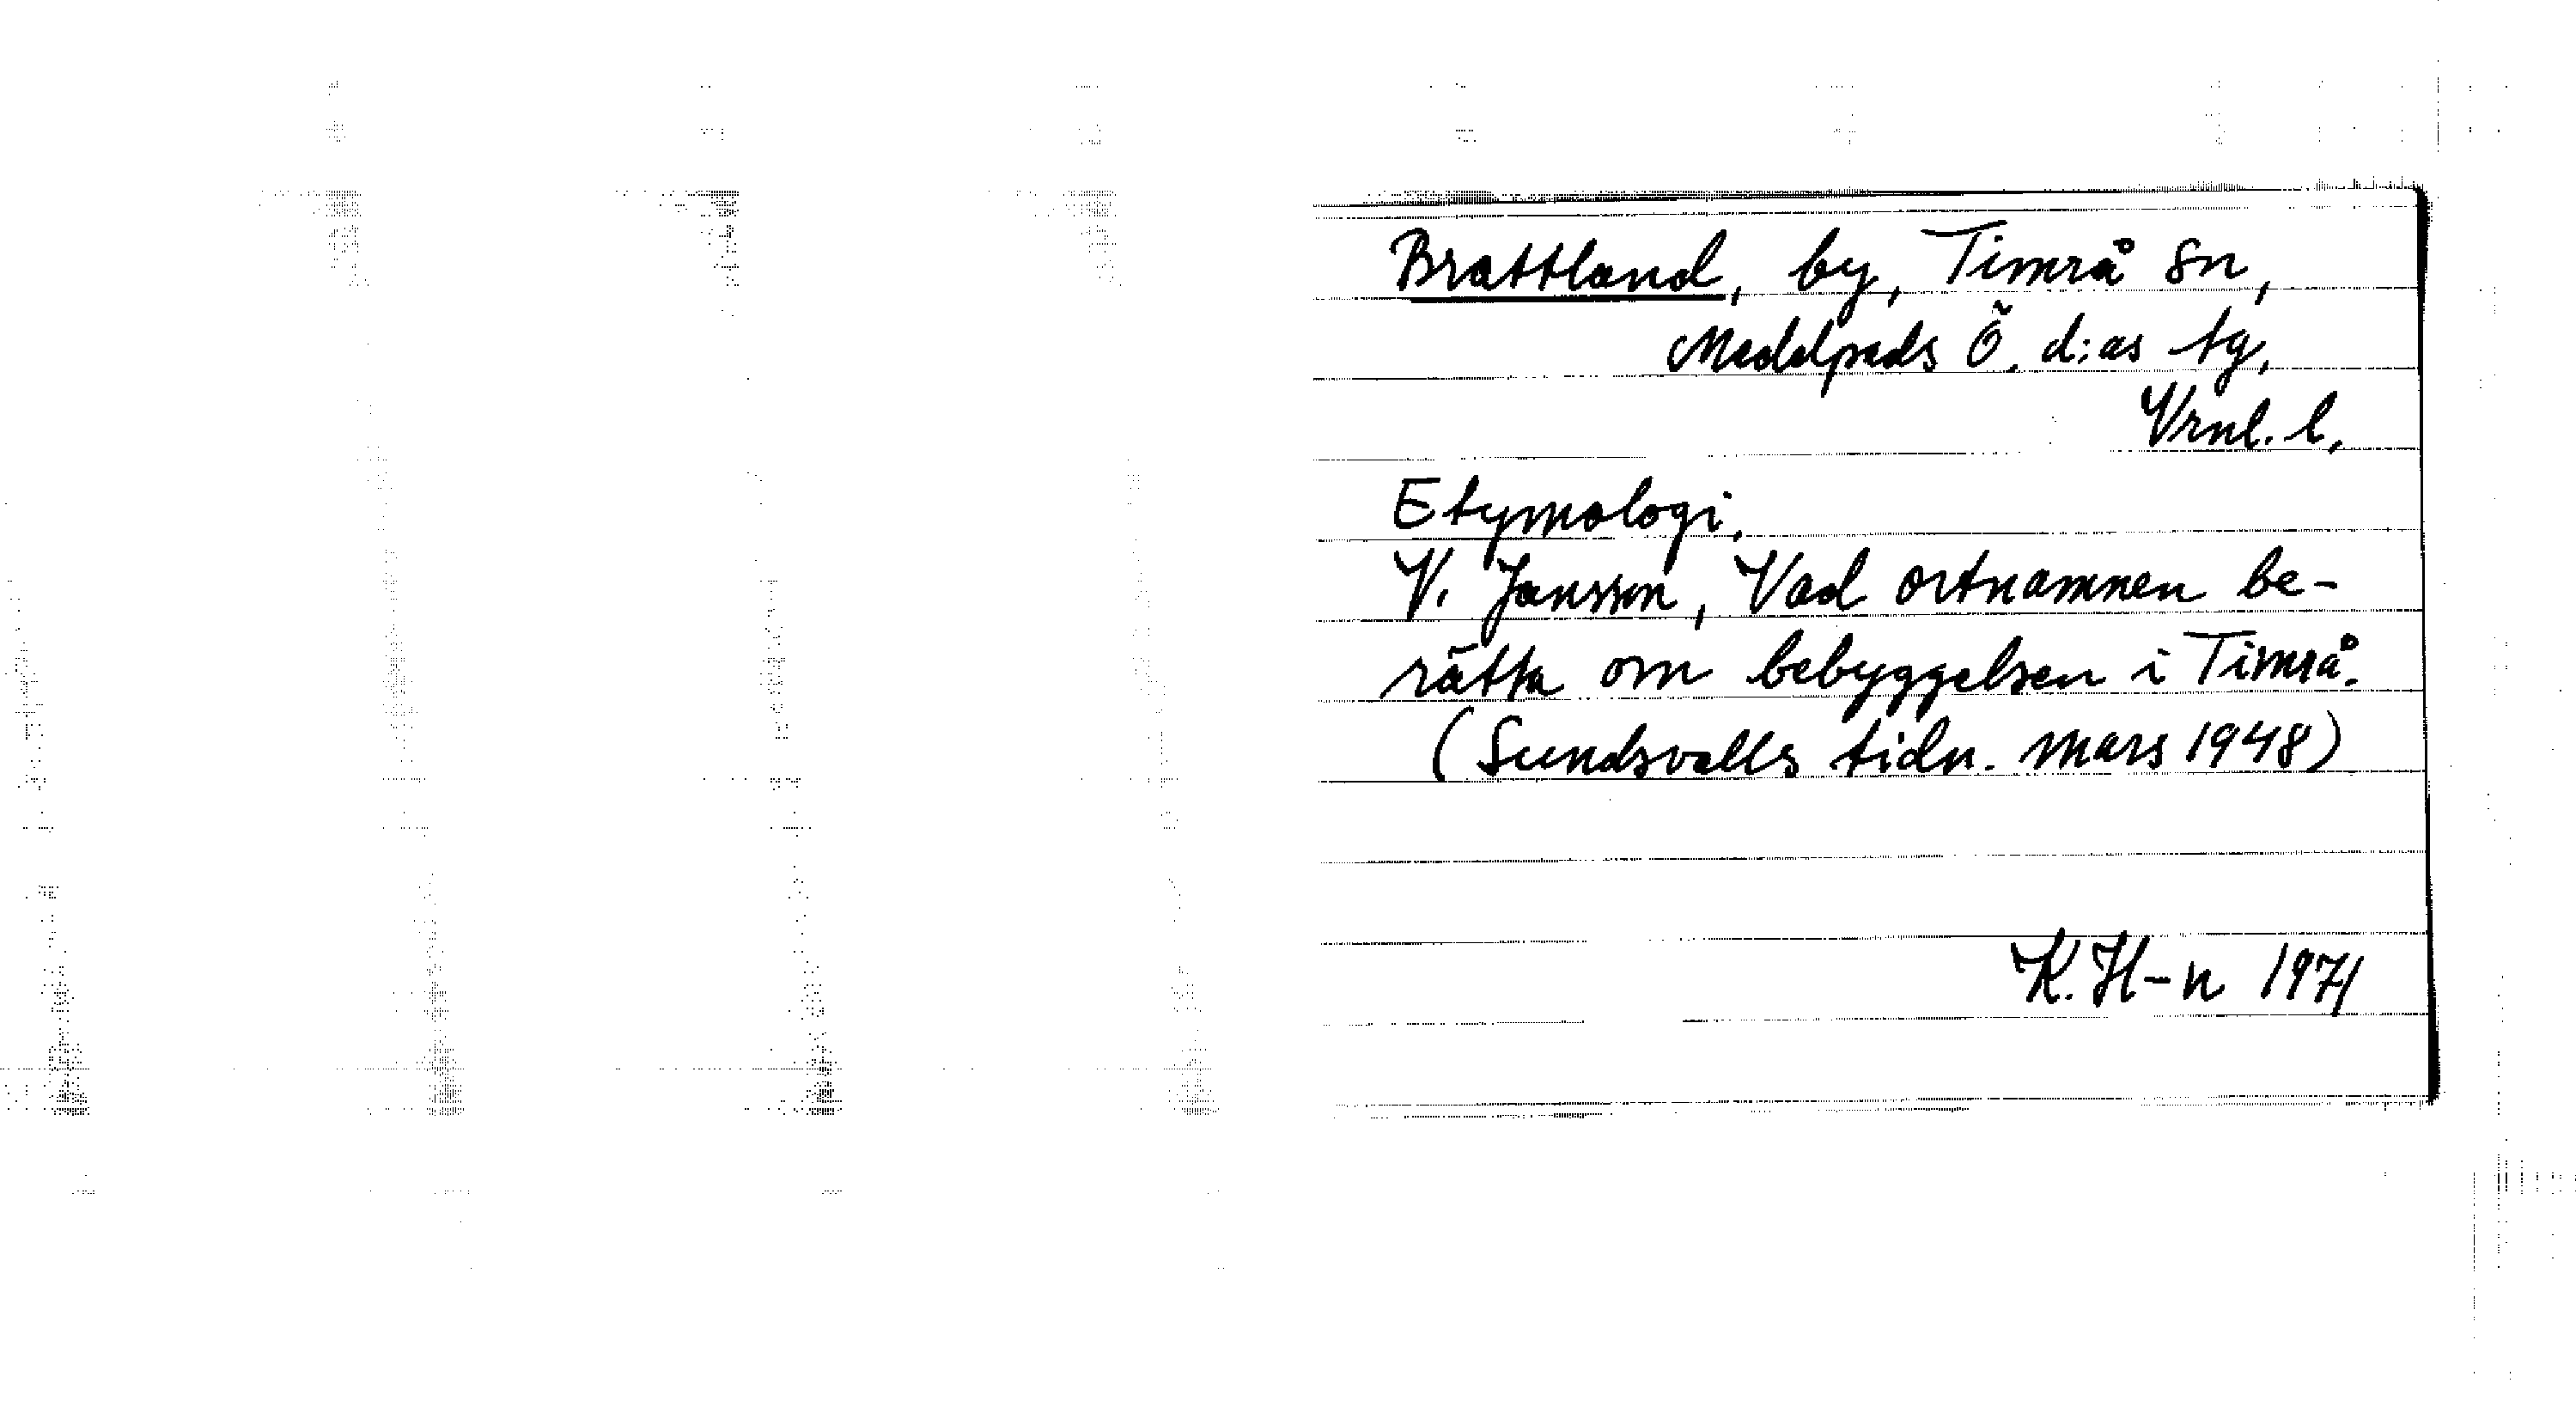 Brattland, by, Timrå sn,
Medelpads Ö. d:as tg,
Vrnl. l.
Etymologi.
V. Jansson, Vad ortnamnen be-
rätta om bebyggelsen i Timrå.
(Sundsvalls tidn. mars 1948)
K. H-n 1971